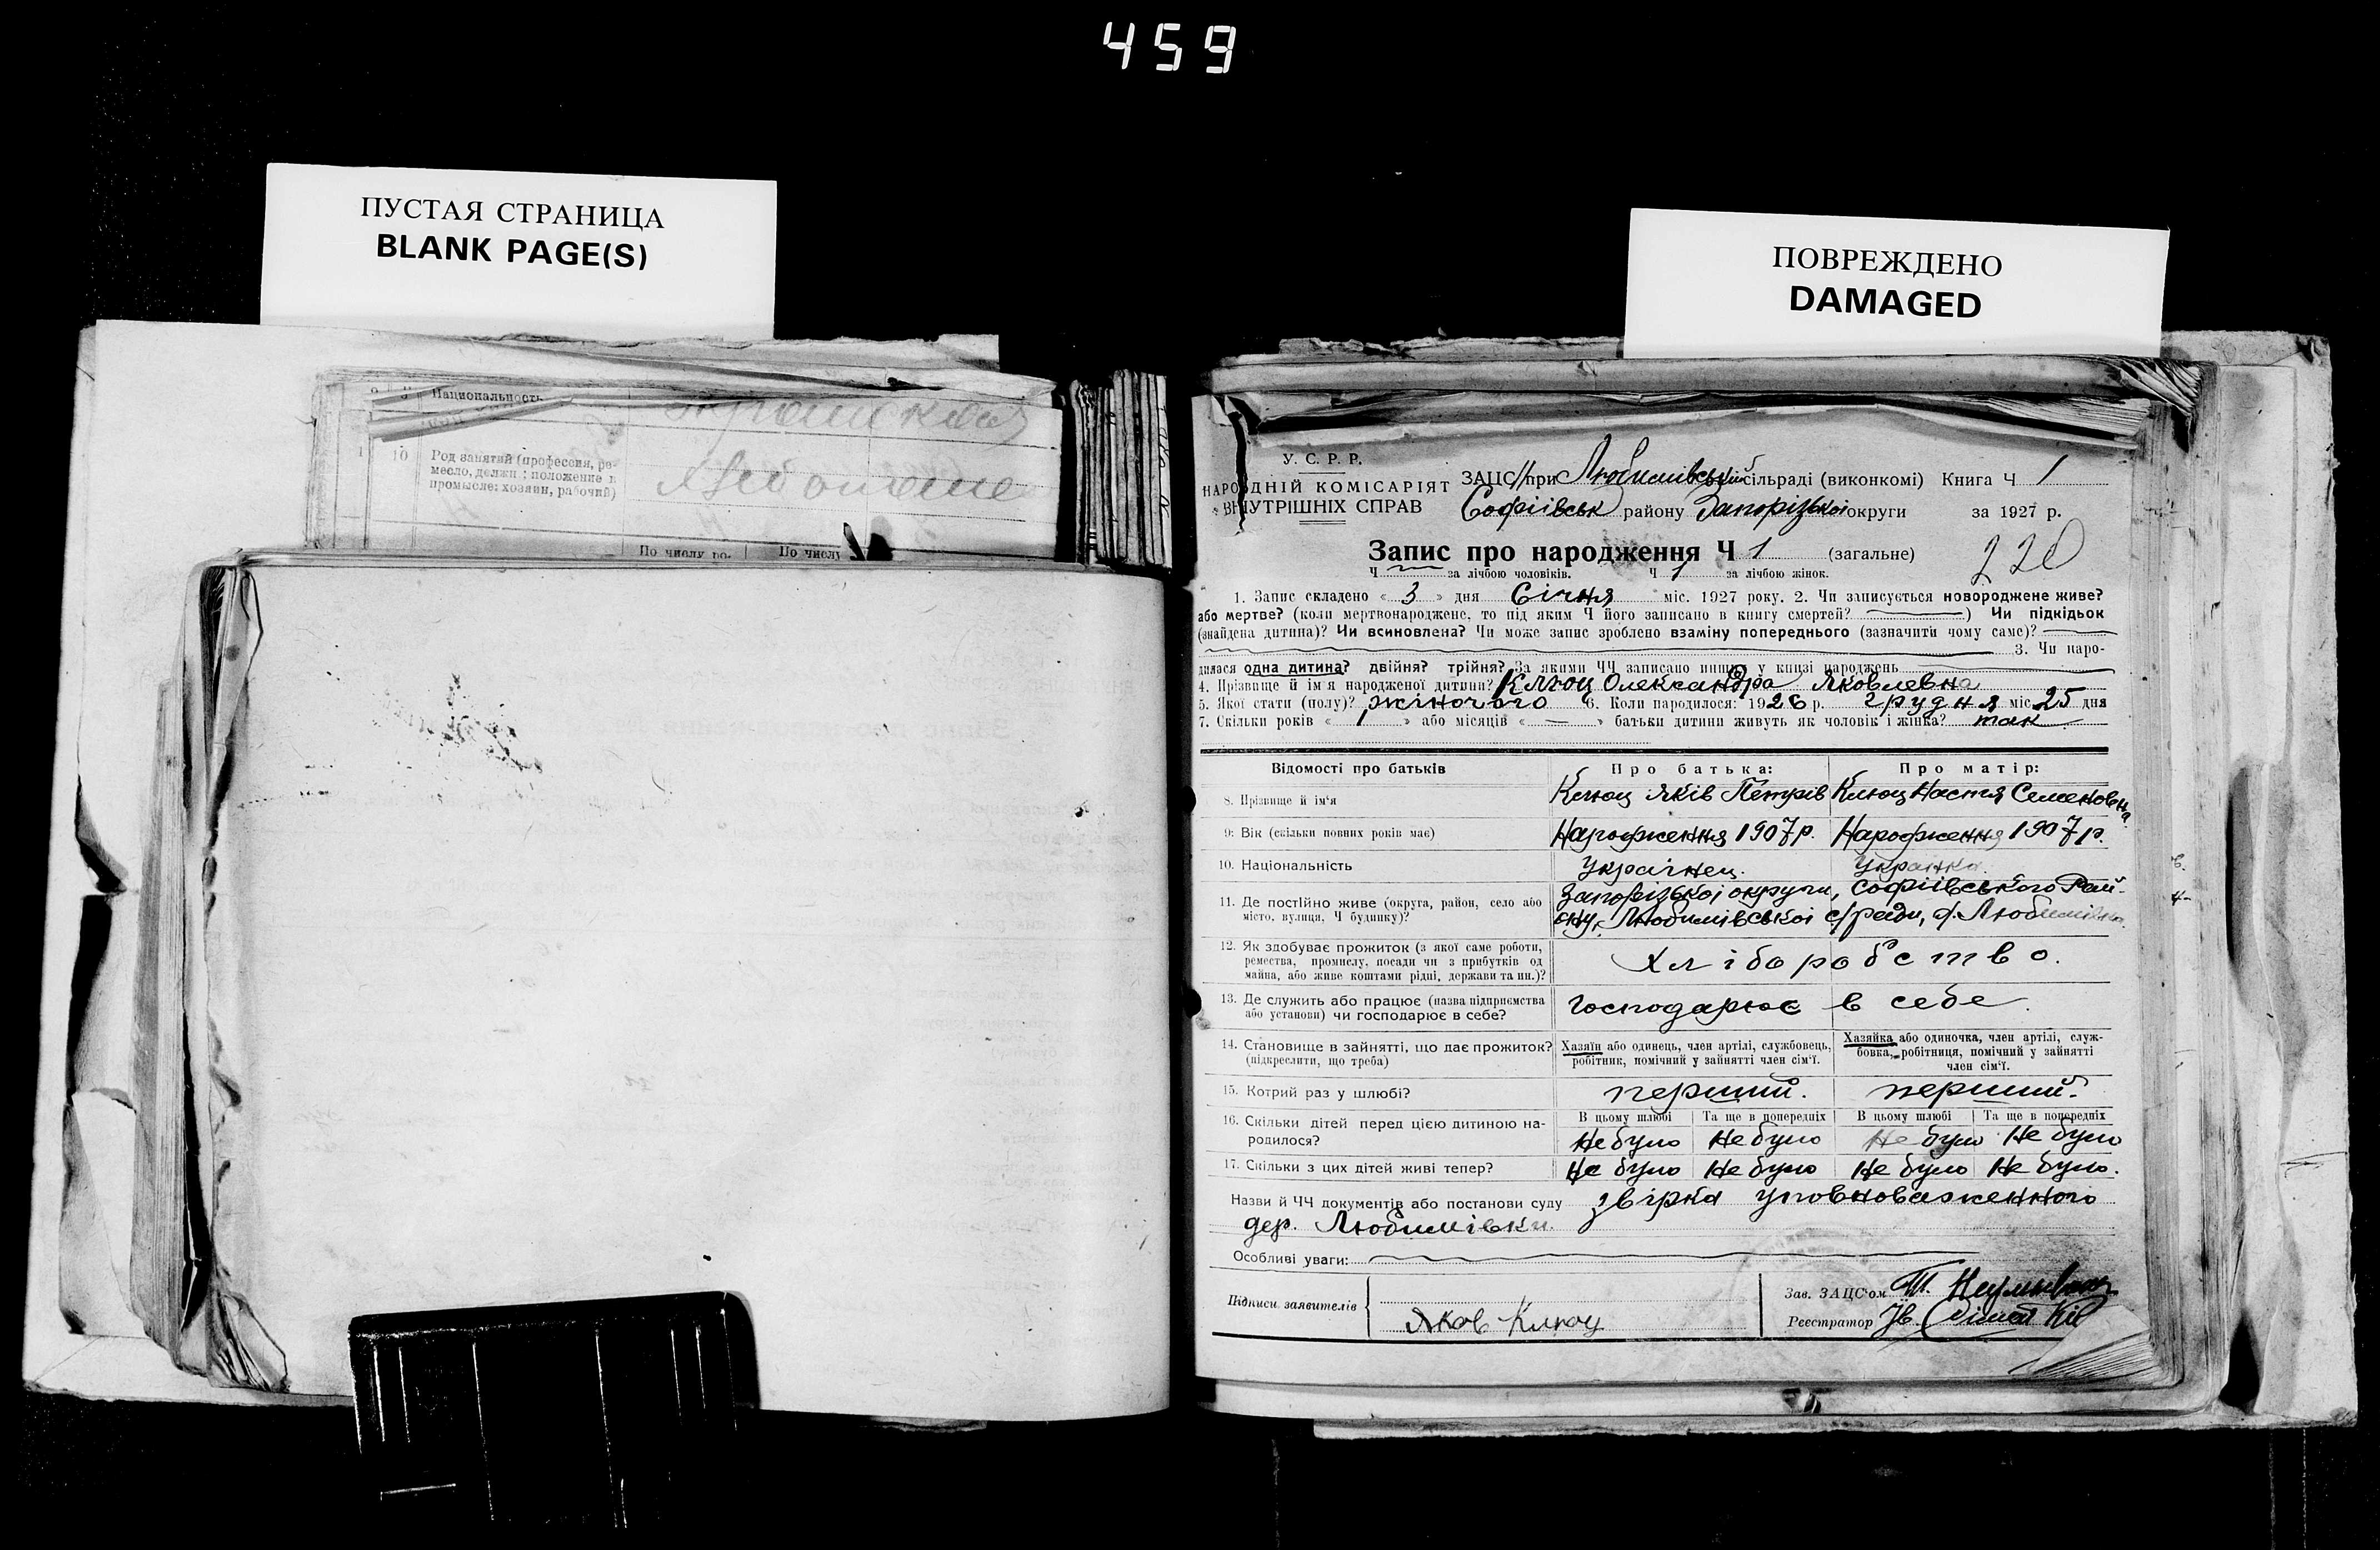 459
ПУСТАЯ СТРАНИЦА
BLANK PAGE(S)
ПОВРЕЖДЕНО
DAMAGED
9 Национальность
10 Род занятий (профессия, ре-
месло, должн; положение в
промысле: хозяин, рабочий)
По числу ро- По числу
У. С. Р. Р.
НАРОДНІЙ КОМІСАРІЯТ
ВНУТРІШНІХ СПРАВ
ЗАЦС при Любимівській сільраді (виконкомі) Книга Ч 1
Софіівськ району Запорізькоі округи за 1927 р.
Запис про народження Ч 1 (загальне) 220
Ч за лічбою чоловіків. Ч 1 за лічбою жінок.
1. Запис складено « 3 » дня Січня міс. 1927 року. 2. Чи записується новороджене живе?
або мертве? (коли мертвонароджене, то під яким Ч його записано в книгу смертей? ) Чи підкідьок
(знайдена дитина)? Чи всиновлена? Чи може запис зроблено взаміну попереднього (зазначити чому саме)?
3. Чи наро-
дилася одна дитина? двійня? трійня? За якими ЧЧ записано инших у книзі народжень
4. Прізвище й ім'я народженої дитини? Клюц Олександра Яковлевна
5. Якої стати (полу)? жіночого 6. Коли народилося: 1926 р. грудня міс 25 дня
7. Скільки років « 1 » або місяців « — » батьки дитини живуть як чоловік і жінка? так
Відомості про батьків Про батька: Про матір:
8. Прізвище й ім'я Клюц Яків Петрів Клюц Настя Семеновна
9. Вік (скільки повних років має) Народження 1907 р. Народження 1907 р.
10. Національність Українец. Украінка.
11. Де постійно живе (округа, район, село або
місто, вулиця, Ч будинку)?
Запорізькоі округи, Софіівського Рай-
ону, Любимівськоі с/ради, д. Любимівка
12. Як здобуває прожиток (з якої саме роботи,
ремества, промислу, посади чи з прибутків од
майна, або живе коштами рідні, держави та ин.)?
Хліборобство.
13. Де служить або працює (назва підприємства
або установи) чи господарює в себе?
господарює в себе.
14. Становище в зайнятті, що дає прожиток?
(підкреслити, що треба)
Хазяїн або одинець, член артілі, службовець,
робітник, помічний у зайнятті член сім'ї.
Хазяйка або одиночка, член артілі, служ-
бовка, робітниця, помічний у зайнятті
член сім'ї.
15. Котрий раз у шлюбі? перший. перший.
16. Скільки дітей перед цією дитиною на-
родилося?
В цьому шлюбі Та ще в попередніх В цьому шлюбі Та ще в попередніх
Не було Не було Не було Не було
17. Скільки з цих дітей живі тепер? Не було Не було Не було Не було.
Назви й ЧЧ документів або постанови суду звірка уповноваженного
дер. Любимівки.
Особливі уваги:
Підписи заявителів
Яков Клюц
Зав. ЗАЦС'ом
Реєстратор